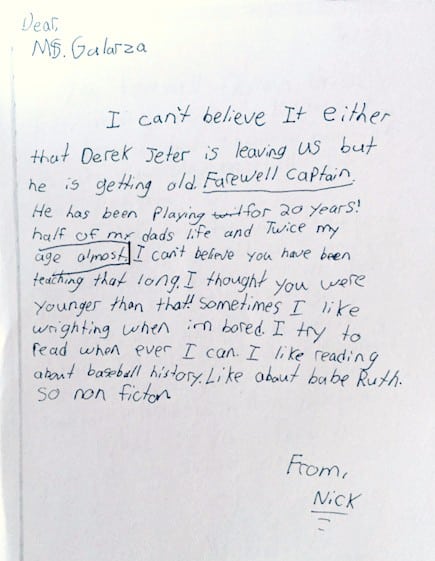 Dear,
MS. Galarza
I can't believe It either
that Derek Jeter is leaving us but
he is getting old. Farewell Captain.
He has been Playing for 20 years!
half of my dads life and Twice my
age almost. I can't believe you have been
teaching that long. I thought you were
younger than that! Sometimes I like
wrighting when im bored. I try to
read when ever I can. I like reading
about baseball history. Like about babe Ruth.
So non ficton
From,
NiCK